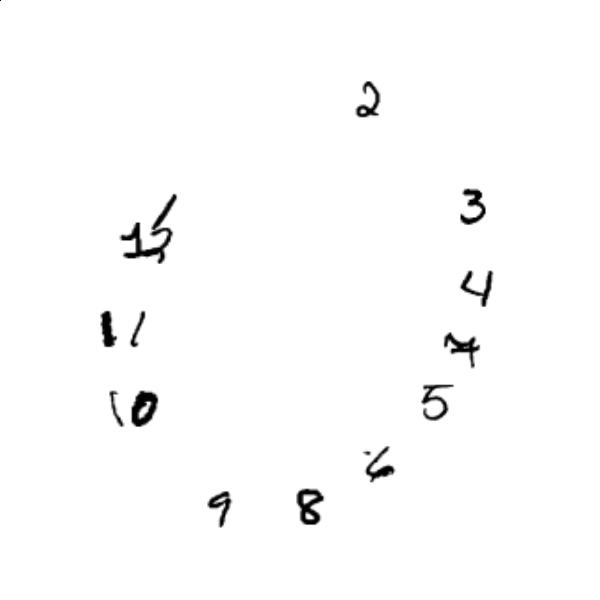 2
3
4
7
5
6
8
9
10
11
12
1